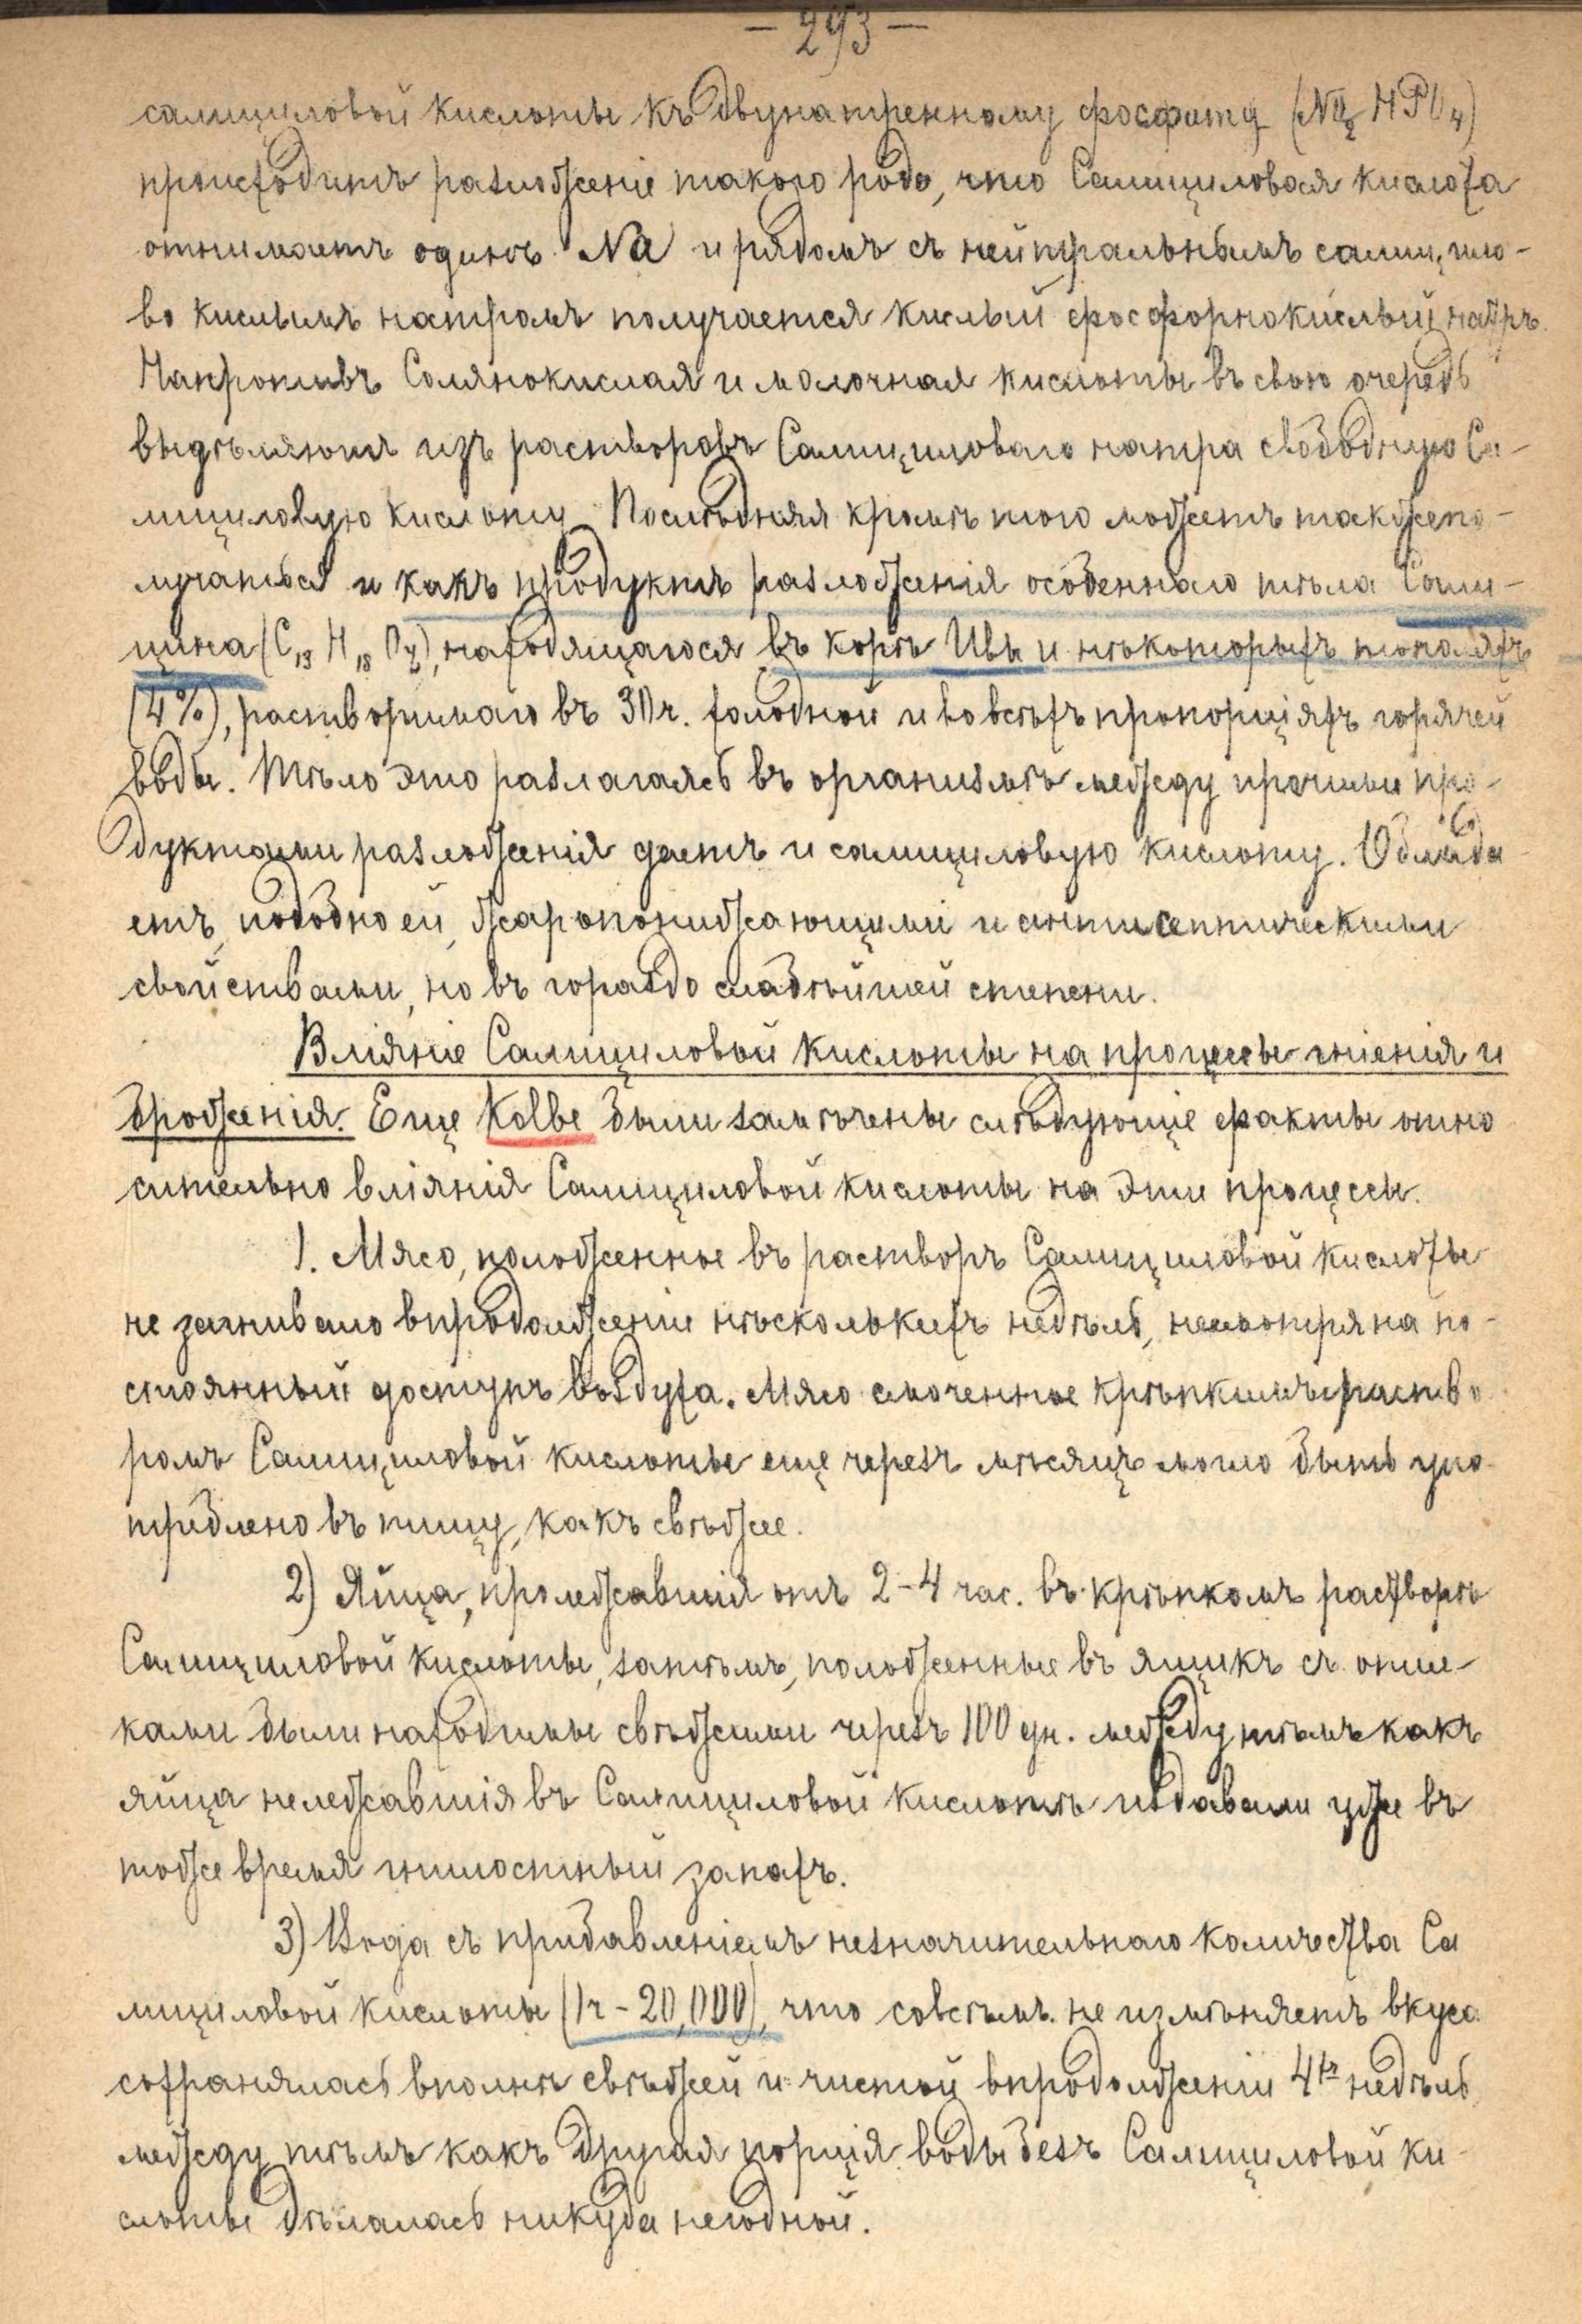 — 293 —
салициловой кислоты къ двунатренному фосфату (Na₂ HPO₄)
происходитъ разложеніе такого рода, что Салициловая кислота
отнимаетъ одинъ Na и рядомъ съ нейтральнымъ салицило-
во кислымъ натромъ получается кислый фосфорнокислый натръ.
Напротивъ Солянокислая и молочная кислоты въ свою очередь
выдѣляютъ изъ растворовъ Салициловаго натра свободную Са-
лициловую кислоту. Послѣдняя кромѣ того можетъ также по-
лучаться и какъ продуктъ разложенія особеннаго тѣла Сали-
цина (C₁₃ H₁₈ O₇), находящагося въ корѣ Ивы и нѣкоторыхъ тополяхъ
(4%), растворимаго въ 30 ч. холодной и во всѣхъ пропорціяхъ горячей
воды. Тѣло это разлагаясь въ организмѣ между прочими про-
дуктами разложенія даетъ и салициловую кислоту. Облада-
етъ, подобно ей, жаропонижающими и антисептическими
свойствами, но въ гораздо слабѣйшей степени.
Вліяніе Салициловой кислоты на процессы гніенія и
броженія. Еще Kolbe были замѣчены слѣдующіе факты отно
сительно вліянія Салициловой кислоты на эти процессы.
1. Мясо, положенное въ растворъ Салициловой кислоты
не загнивало впродолженіи нѣсколькихъ недѣль, несмотря на по-
стоянный доступъ воздуха. Мясо смоченное крѣпкимъ раство
ромъ Салициловой кислоты еще черезъ мѣсяцъ могло быть упо-
треблено въ пищу, какъ свѣжее.
2) Яйца, пролежавшія отъ 2-4 час. въ крѣпкомъ растворѣ
Салициловой кислоты, затѣмъ, положенные въ ящикъ съ опил-
ками были находимы свѣжими черезъ 100 дн. между тѣмъ какъ
яйца нележавшія въ Салициловой кислотѣ издавали уже въ
тоже время гнилостный запахъ.
3) Вода съ прибавленіемъ незначительнаго количества Са
лициловой кислоты (1ч - 20,000), что совсѣмъ не измѣняетъ вкуса
сохранялась вполнѣ свѣжей и чистой впродолженіи 4хъ недѣль,
между тѣмъ какъ другая порція воды безъ Салициловой ки-
слоты дѣлалась никуда негодной.